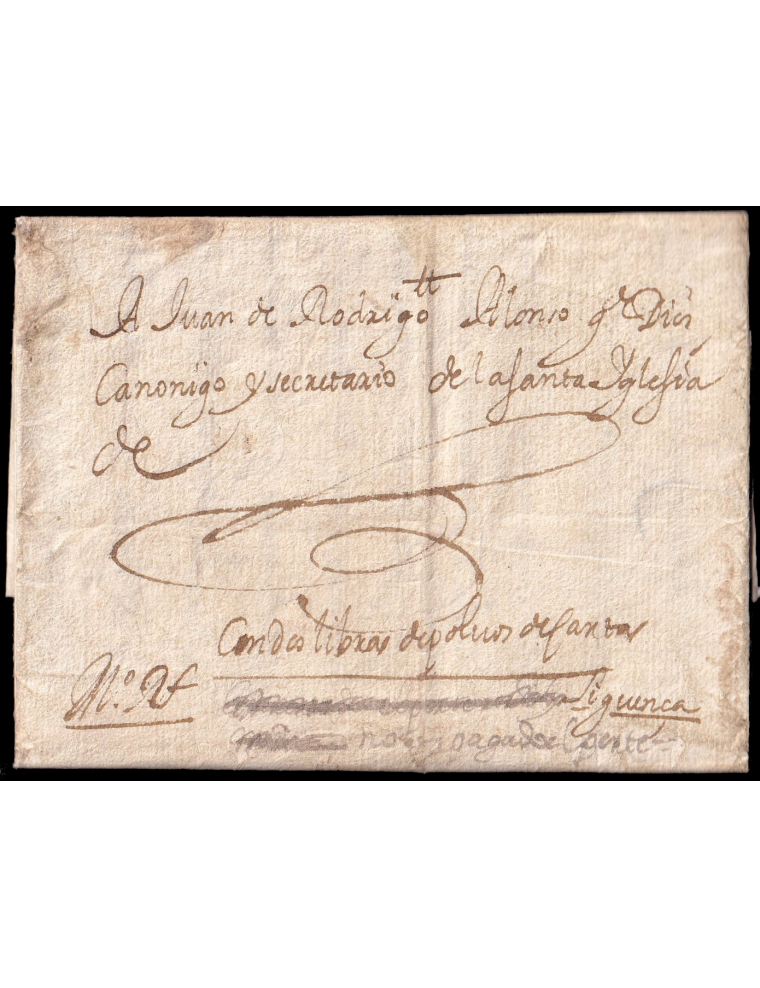 A Juan de Rodrigo tt Alonso ge Dios
Canonigo y secretario de la santa Yglesia
de
Con dos libras de polvos de cartas
Mº Rl Siguenca
no ba pagado el porte